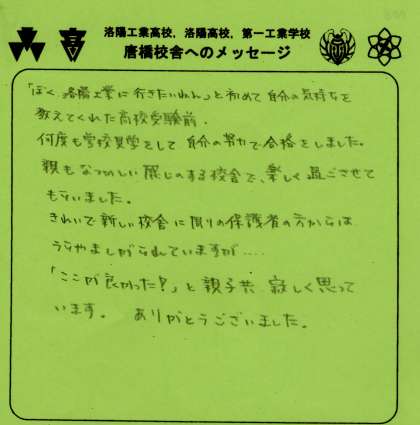 洛陽工業高校，洛陽高校，第一工業学校
唐橋校舎へのメッセージ
「ぼく、洛陽工業に行きたいねん」と初めて自分の気持ちを
教えてくれた高校受験前．
何度も学校見学をして自分の努力で合格をしました。
親もなつかしい感じのする校舎で、楽しく過ごさせて
もらいました。
きれいで新しい校舎に周りの保護者の方からは
うらやましがられていますが....
「ここが良かった？」と親子共 寂しく思って
います。 ありがとうございました。